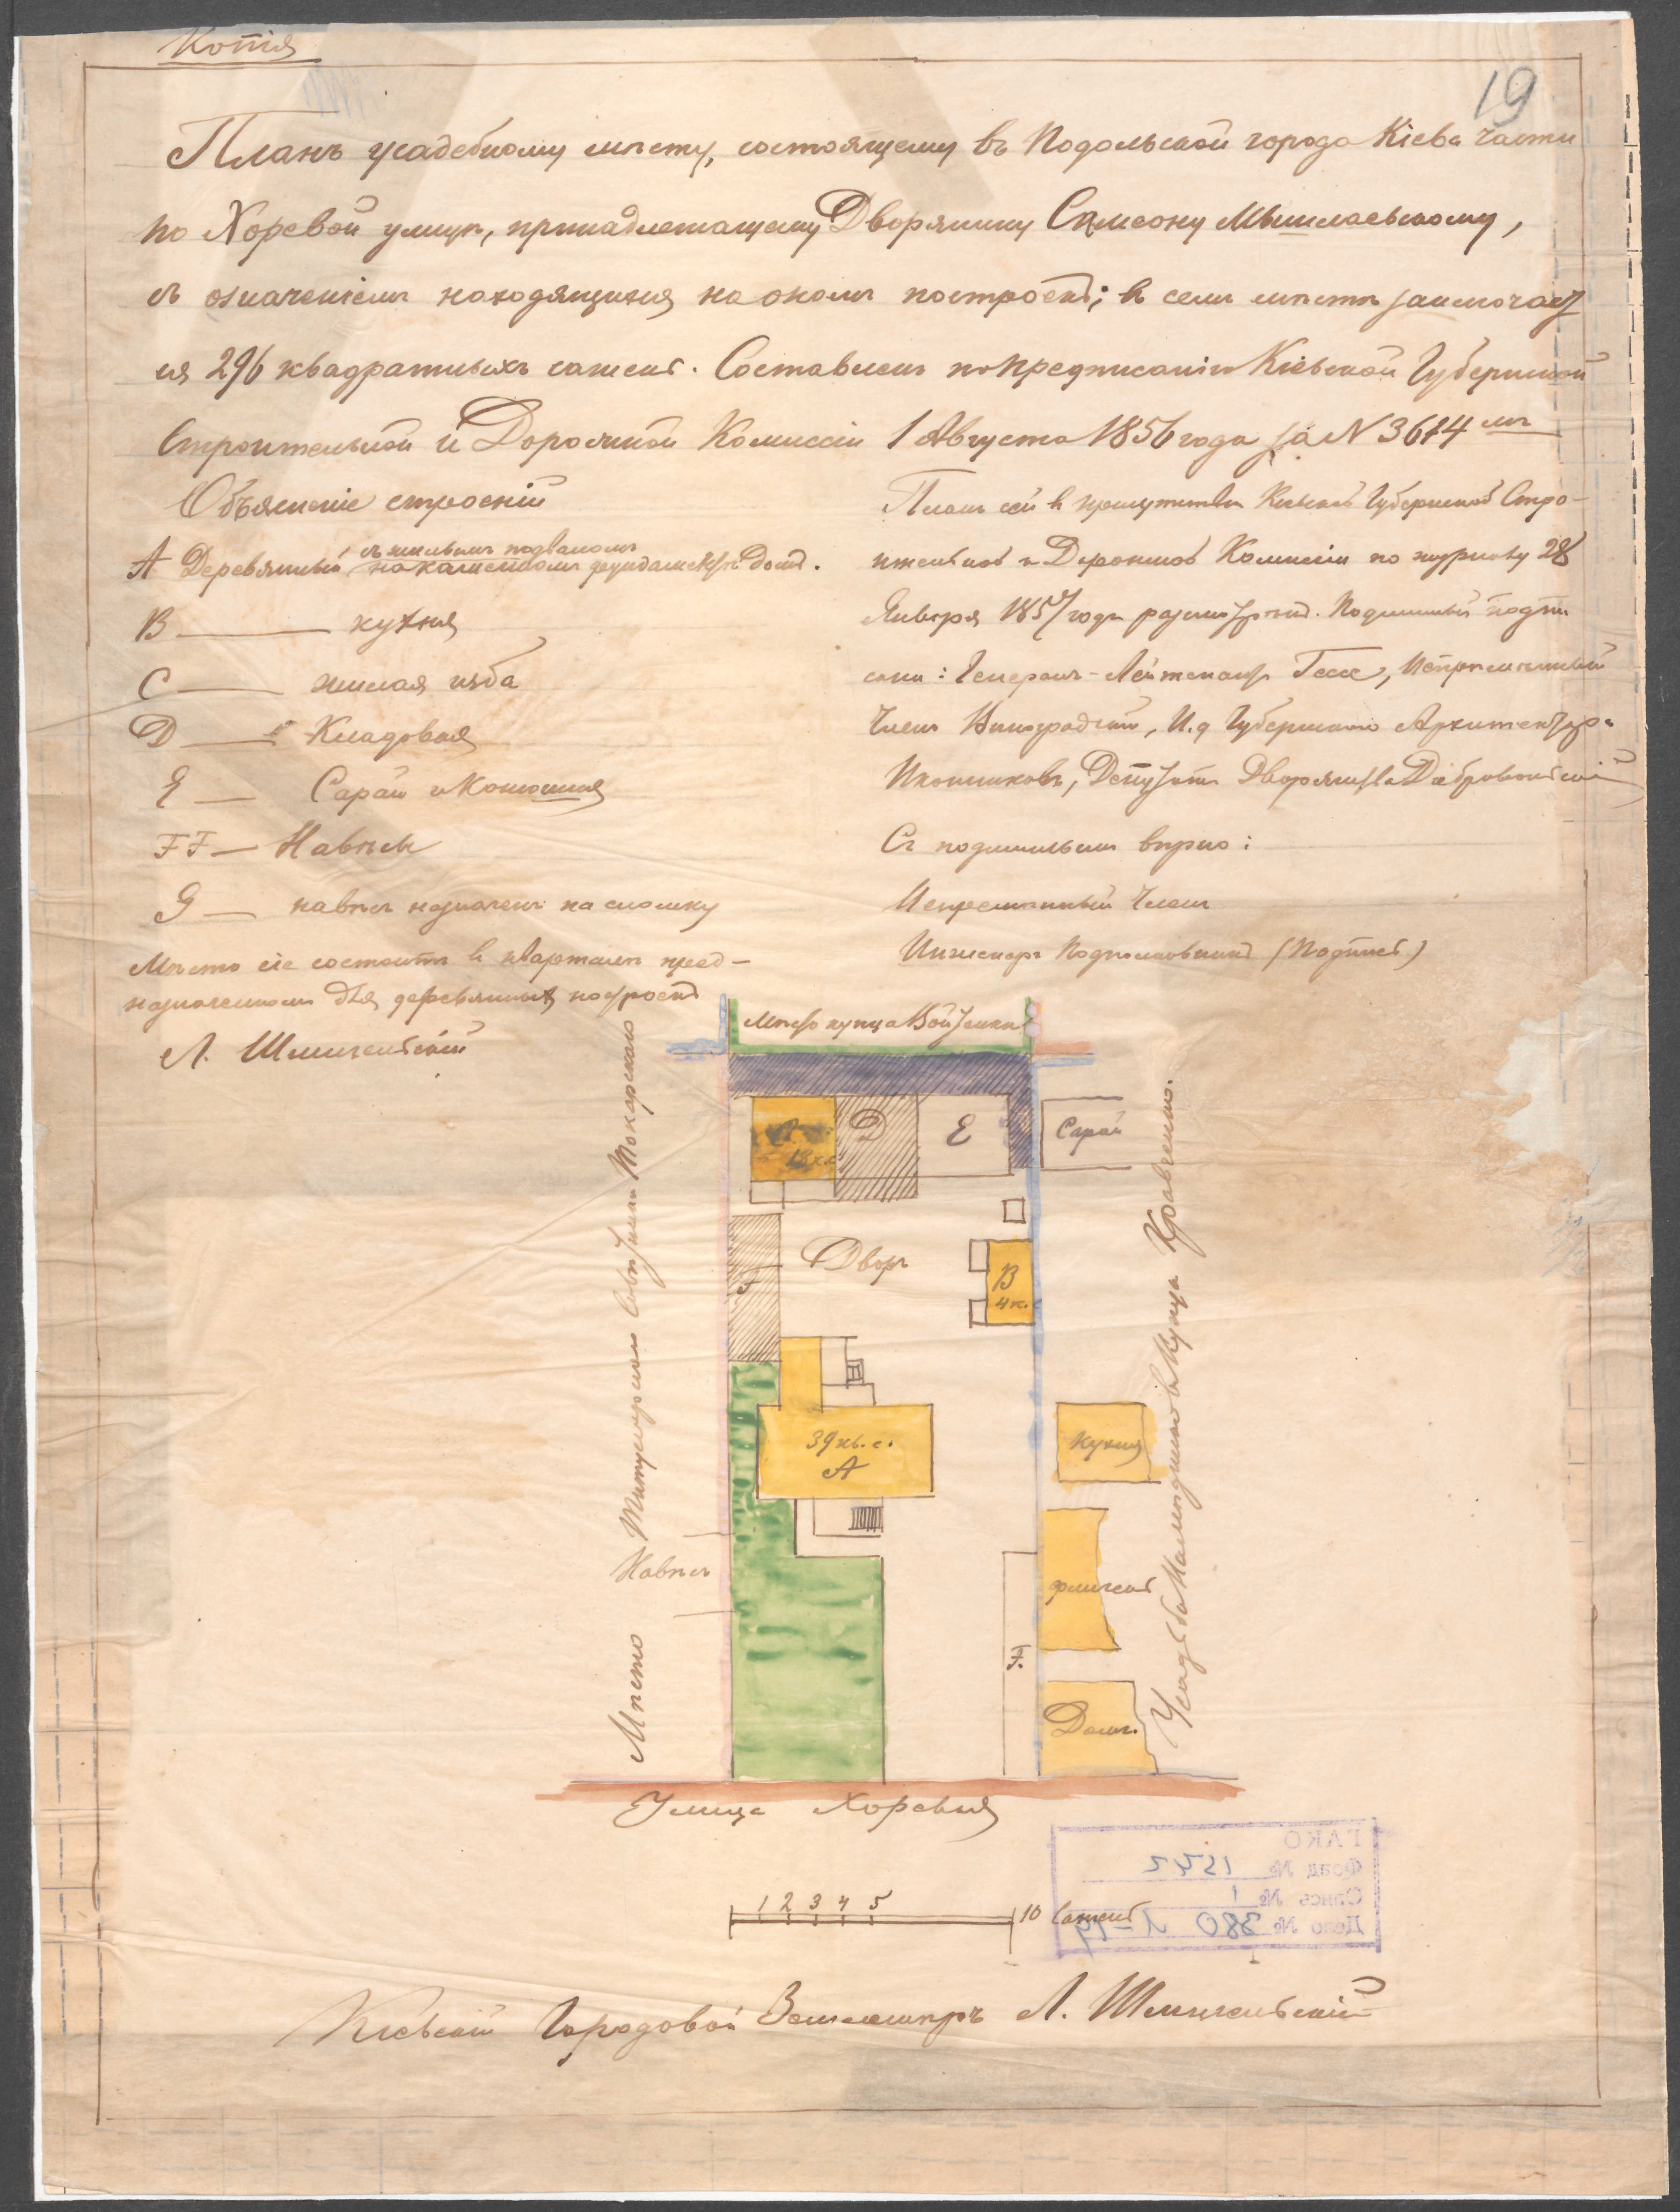 Копія
19
Планъ усадебному мѣсту, состоящему въ Подольской города Кіева части
по Хоревой улицѣ, принадлежащему Дворянину Самсону Мышлаевскому,
съ означеніемъ находящихся на ономъ построекъ; въ семъ мѣстѣ заключает
ся 296 квадратныхъ сажень. Составленъ по предписанію Кіевской Губернской
Строительной и Дорожной Коммиссіи 1 Августа 1856 года за N 3614 мъ
Объясненіе строеній
А Деревянный съ жилымъ подваломъ на каменномъ фундаментѣ домъ.
В — кухня
С — жилая изба
D — Кладовая
Е — Сарай и Конюшня
FF — Навѣсы
G — навѣсъ назначенъ на сломку
Мѣсто сіе состоитъ въ кварталѣ пред-
назначенномъ для деревянныхъ построекъ
Л. Шмигельскій
Планъ сей въ присутствіи Кіевской Губернской Стро-
ительной и Дорожной Комиссіи по журналу 28
Января 1857 года разсмотрѣнъ. Подлинный подпи
сали: Генералъ-Лейтенантъ Гессе, Непремѣнный
Членъ Виноградскій, И.д Губернскаго Архитектора
Иконниковъ, Депутатъ Дворянства Домбровскій
Съ подлиннымъ вѣрно:
Непремѣнный Членъ
Инженеръ Подполковникъ (Подпись)
Мѣсто купца Войтенки
D
Е
Сарай
Дворъ
В
4 к. с
F
39 кв. с.
А
Кухня
флигель
F.
Домъ.
Навѣсъ
Мѣсто Титулярнаго Совѣтника Токарскаго
Усадьба наслѣдниковъ Купца Кравченко.
Улица Хоревая
1 2 3 4 5 10 Сажень
ГАКО
Фонд № 1542
Опись № 1
Дело № 380
Кіевскій Городовой Землемѣръ Л. Шмигельскій